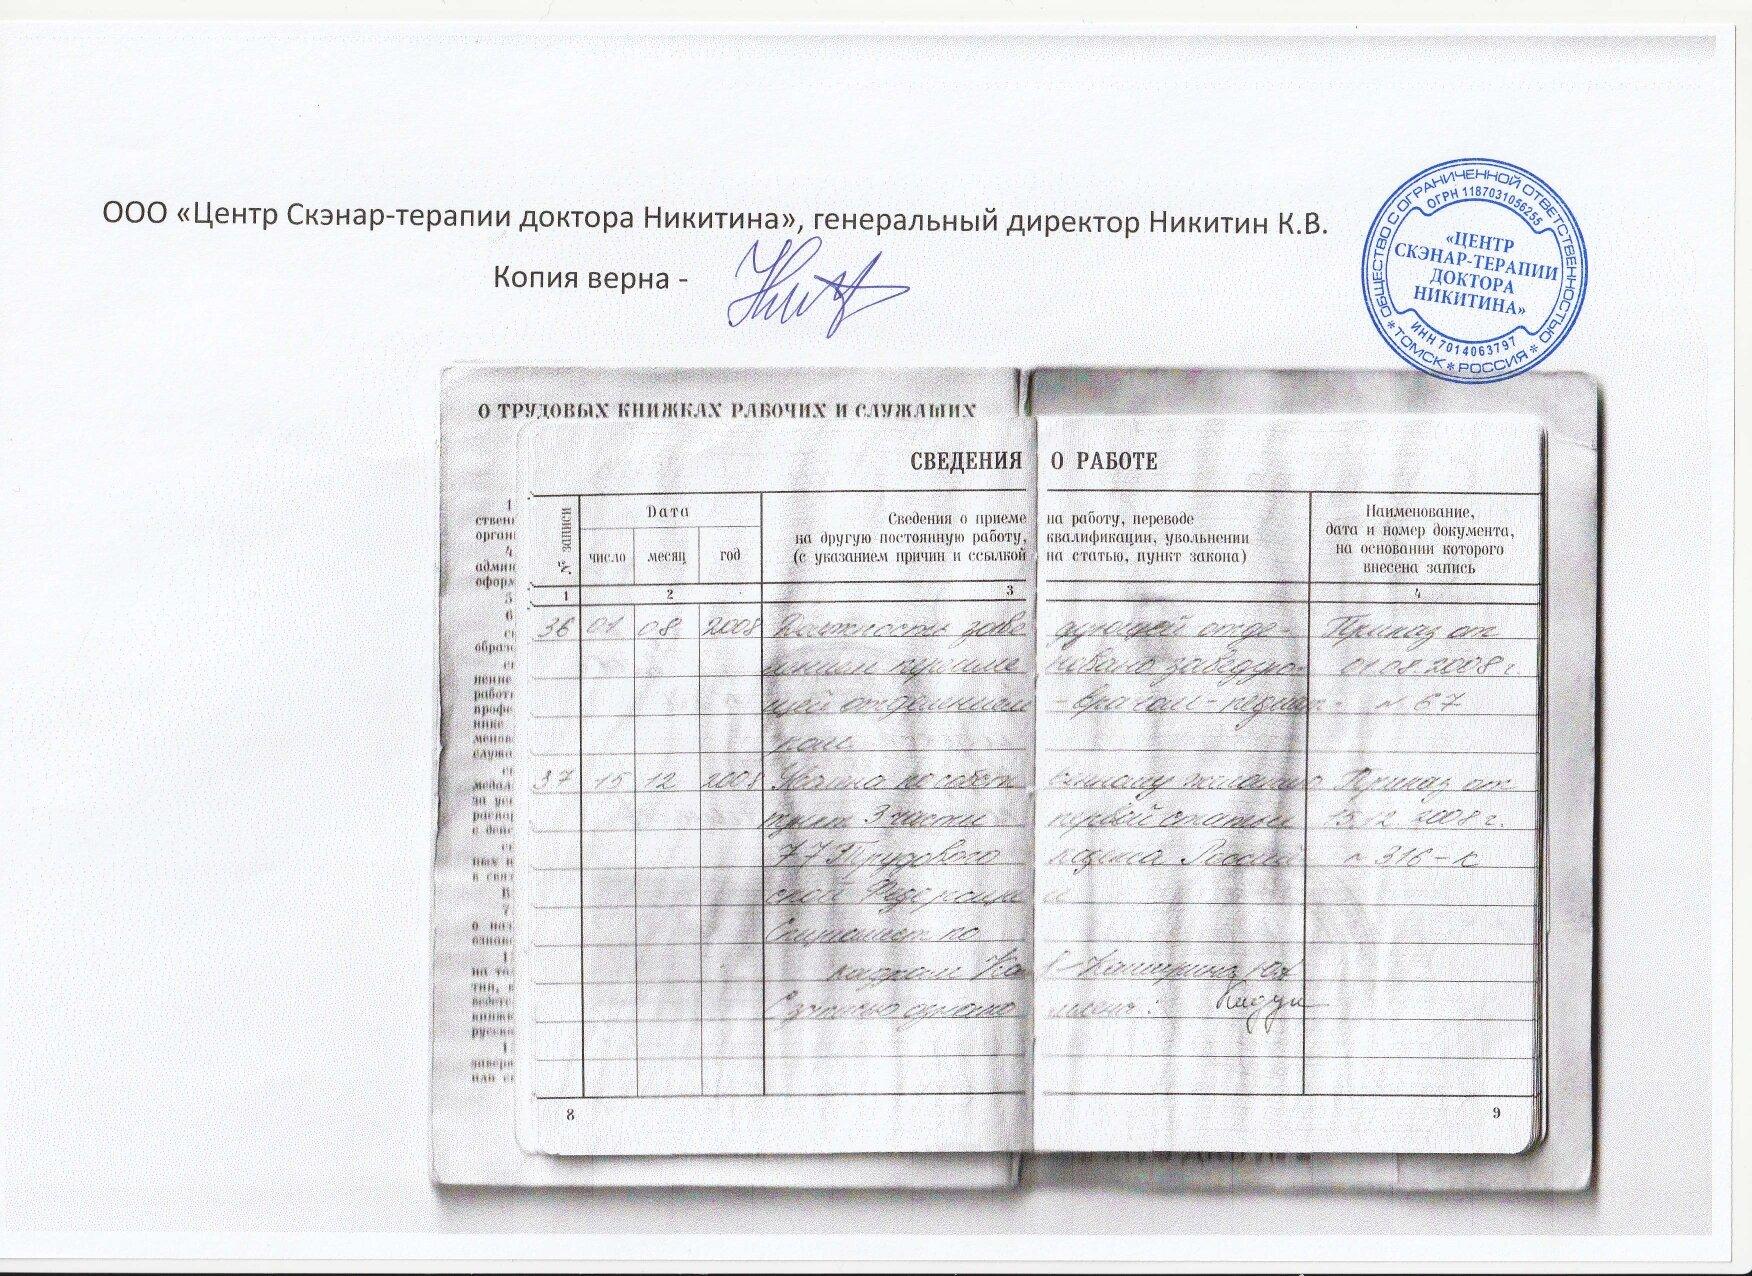 ООО «Центр Скэнар-терапии доктора Никитина», генеральный директор Никитин К.В.
Копия верна -
ОБЩЕСТВО С ОГРАНИЧЕННОЙ ОТВЕТСТВЕННОСТЬЮ
ОГРН 1187031056255
«ЦЕНТР
СКЭНАР-ТЕРАПИИ
ДОКТОРА
НИКИТИНА»
ИНН 7014063797
* ТОМСК * РОССИЯ *
О ТРУДОВЫХ КНИЖКАХ РАБОЧИХ И СЛУЖАЩИХ
СВЕДЕНИЯ О РАБОТЕ
№ записи
Дата
число месяц год
Сведения о приеме на работу, переводе
на другую постоянную работу, квалификации, увольнении
(с указанием причин и ссылкой на статью, пункт закона)
Наименование,
дата и номер документа,
на основании которого
внесена запись
1 2 3 4
36 01 08 2008 Должность заве дующей отде- Приказ от
лением переиме новано заведую- 01.08.2008 г.
щей отделением - врачом - педиат- № 67
ром.
37 15 12 2008 Уволена по собст венному желанию Приказ от
пункт 3 части первой статьи 15.12 2008 г.
77 Трудового кодекса Россий № 316-к
ской Федераци и
Специалист по
кадрам
8
9